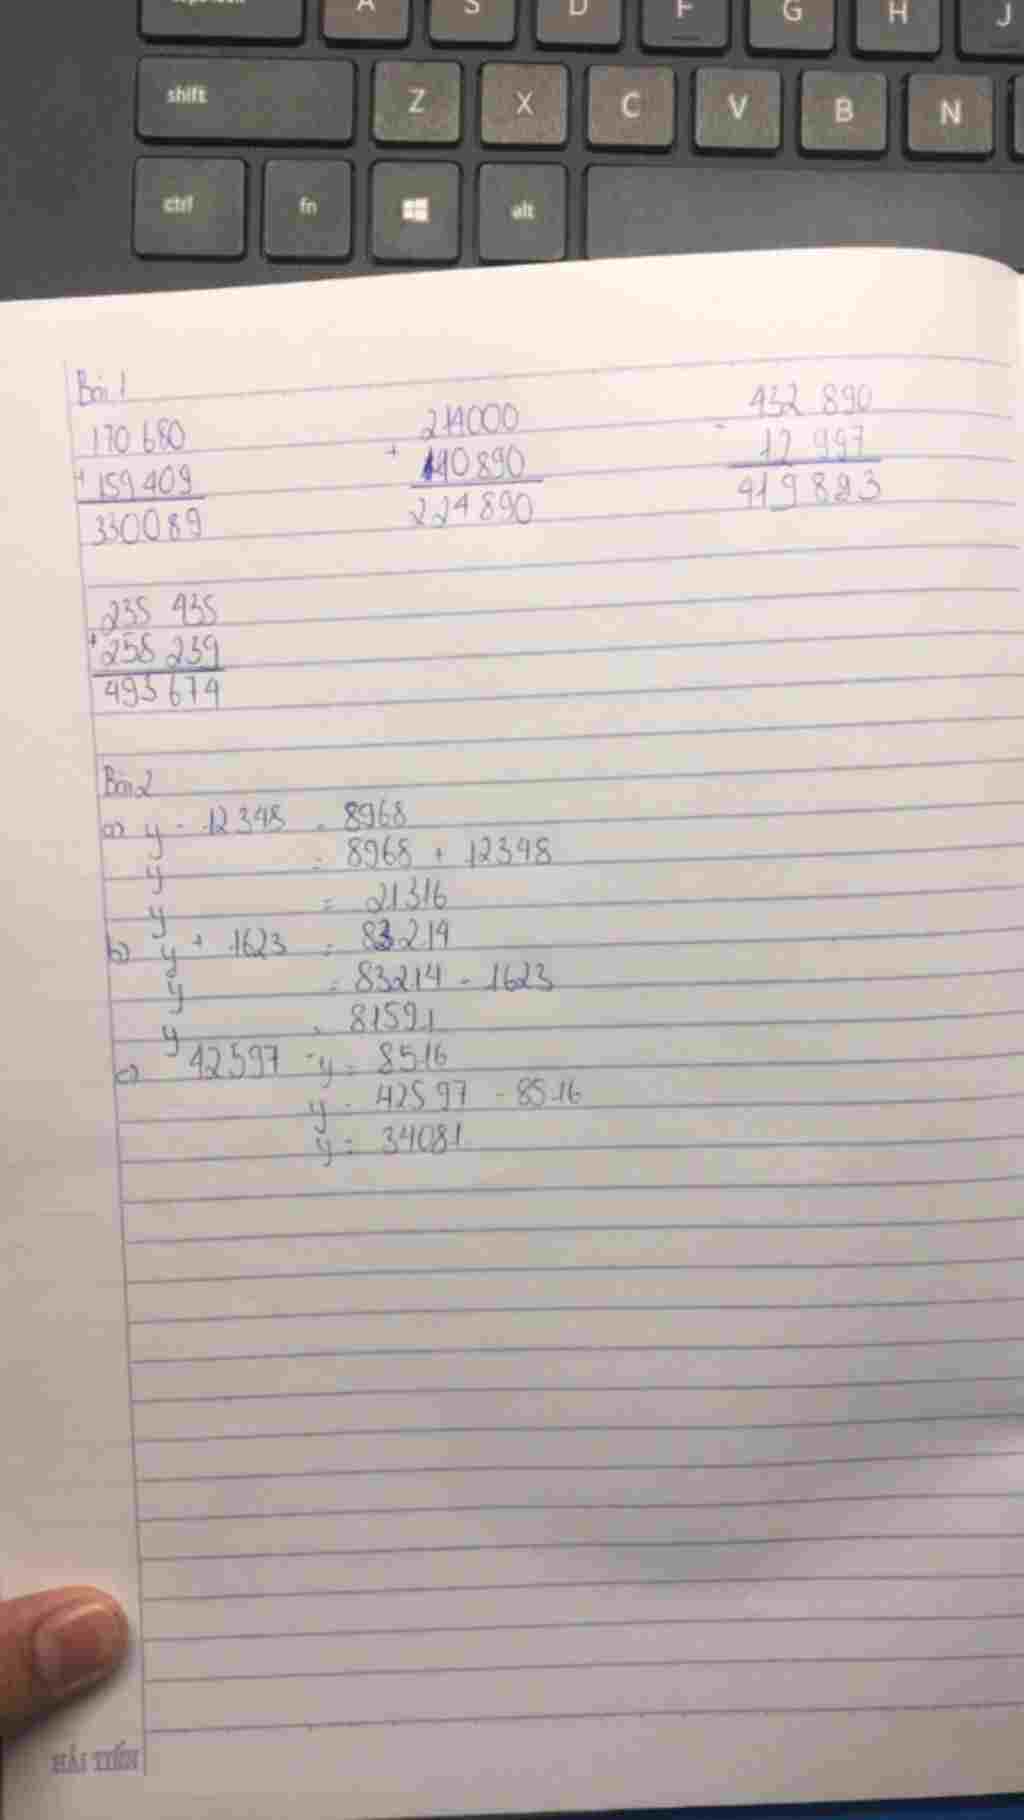 A S D F G H J
shift Z X C V B N
ctrl fn alt
Bài 1
170 680
+
159 409
330089
214000
+
10890
224890
432 890
-
12 997
419 893
235 435
+
258 239
493 674
Bài 2
a) y - 12348 = 8968
y = 8968 + 12348
y = 21316
b) y + 1623 = 83214
y = 83214 - 1623
y = 81591
c) 42597 - y = 8516
y = 42597 - 8516
y = 34081
HẢI TIẾN